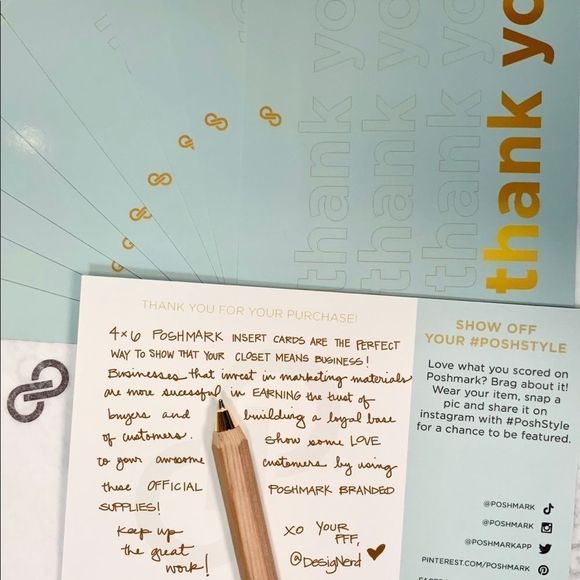 thank yo
thank yo
thank you
thank yo
THANK YOU FOR YOUR PURCHASE!
4x6 POSHMARK INSERT CARDS ARE THE PERFECT
WAY TO SHOW THAT YOUR CLOSET MEANS BUSINESS!
Businesses that invest in marketing materials
are more sucessful in EARNING the trust of
buyers and building a loyal base
of customers. show some LOVE
to your awesome customers by using
these OFFICIAL POSHMARK BRANDED
SUPPLIES!
Keep up
the great
work!
XO YOUR
PFF,
@DESIGNerd
SHOW OFF
YOUR #POSHSTYLE
Love what you scored on
Poshmark? Brag about it!
Wear your item, snap a
pic and share it on
instagram with #PoshStyle
for a chance to be featured.
@POSHMARK
@POSHMARK
@POSHMARKAPP
PINTEREST.COM/POSHMARK